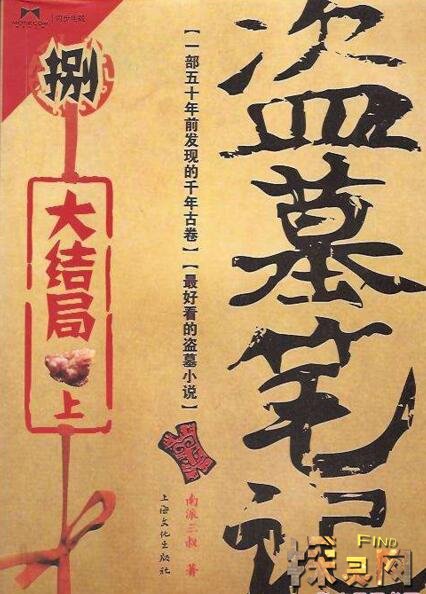 MOTIECOM
同步出版
捌
大结局
上
【一部五十年前发现的千年古卷】【最好看的盗墓小说】
盗墓笔记
南派三叔 著
上海文化出版社
FIND
探灵网